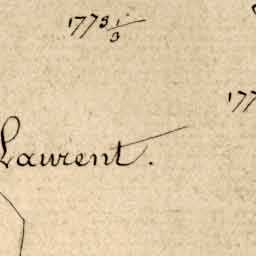 1773 1/3
177
Laurent.